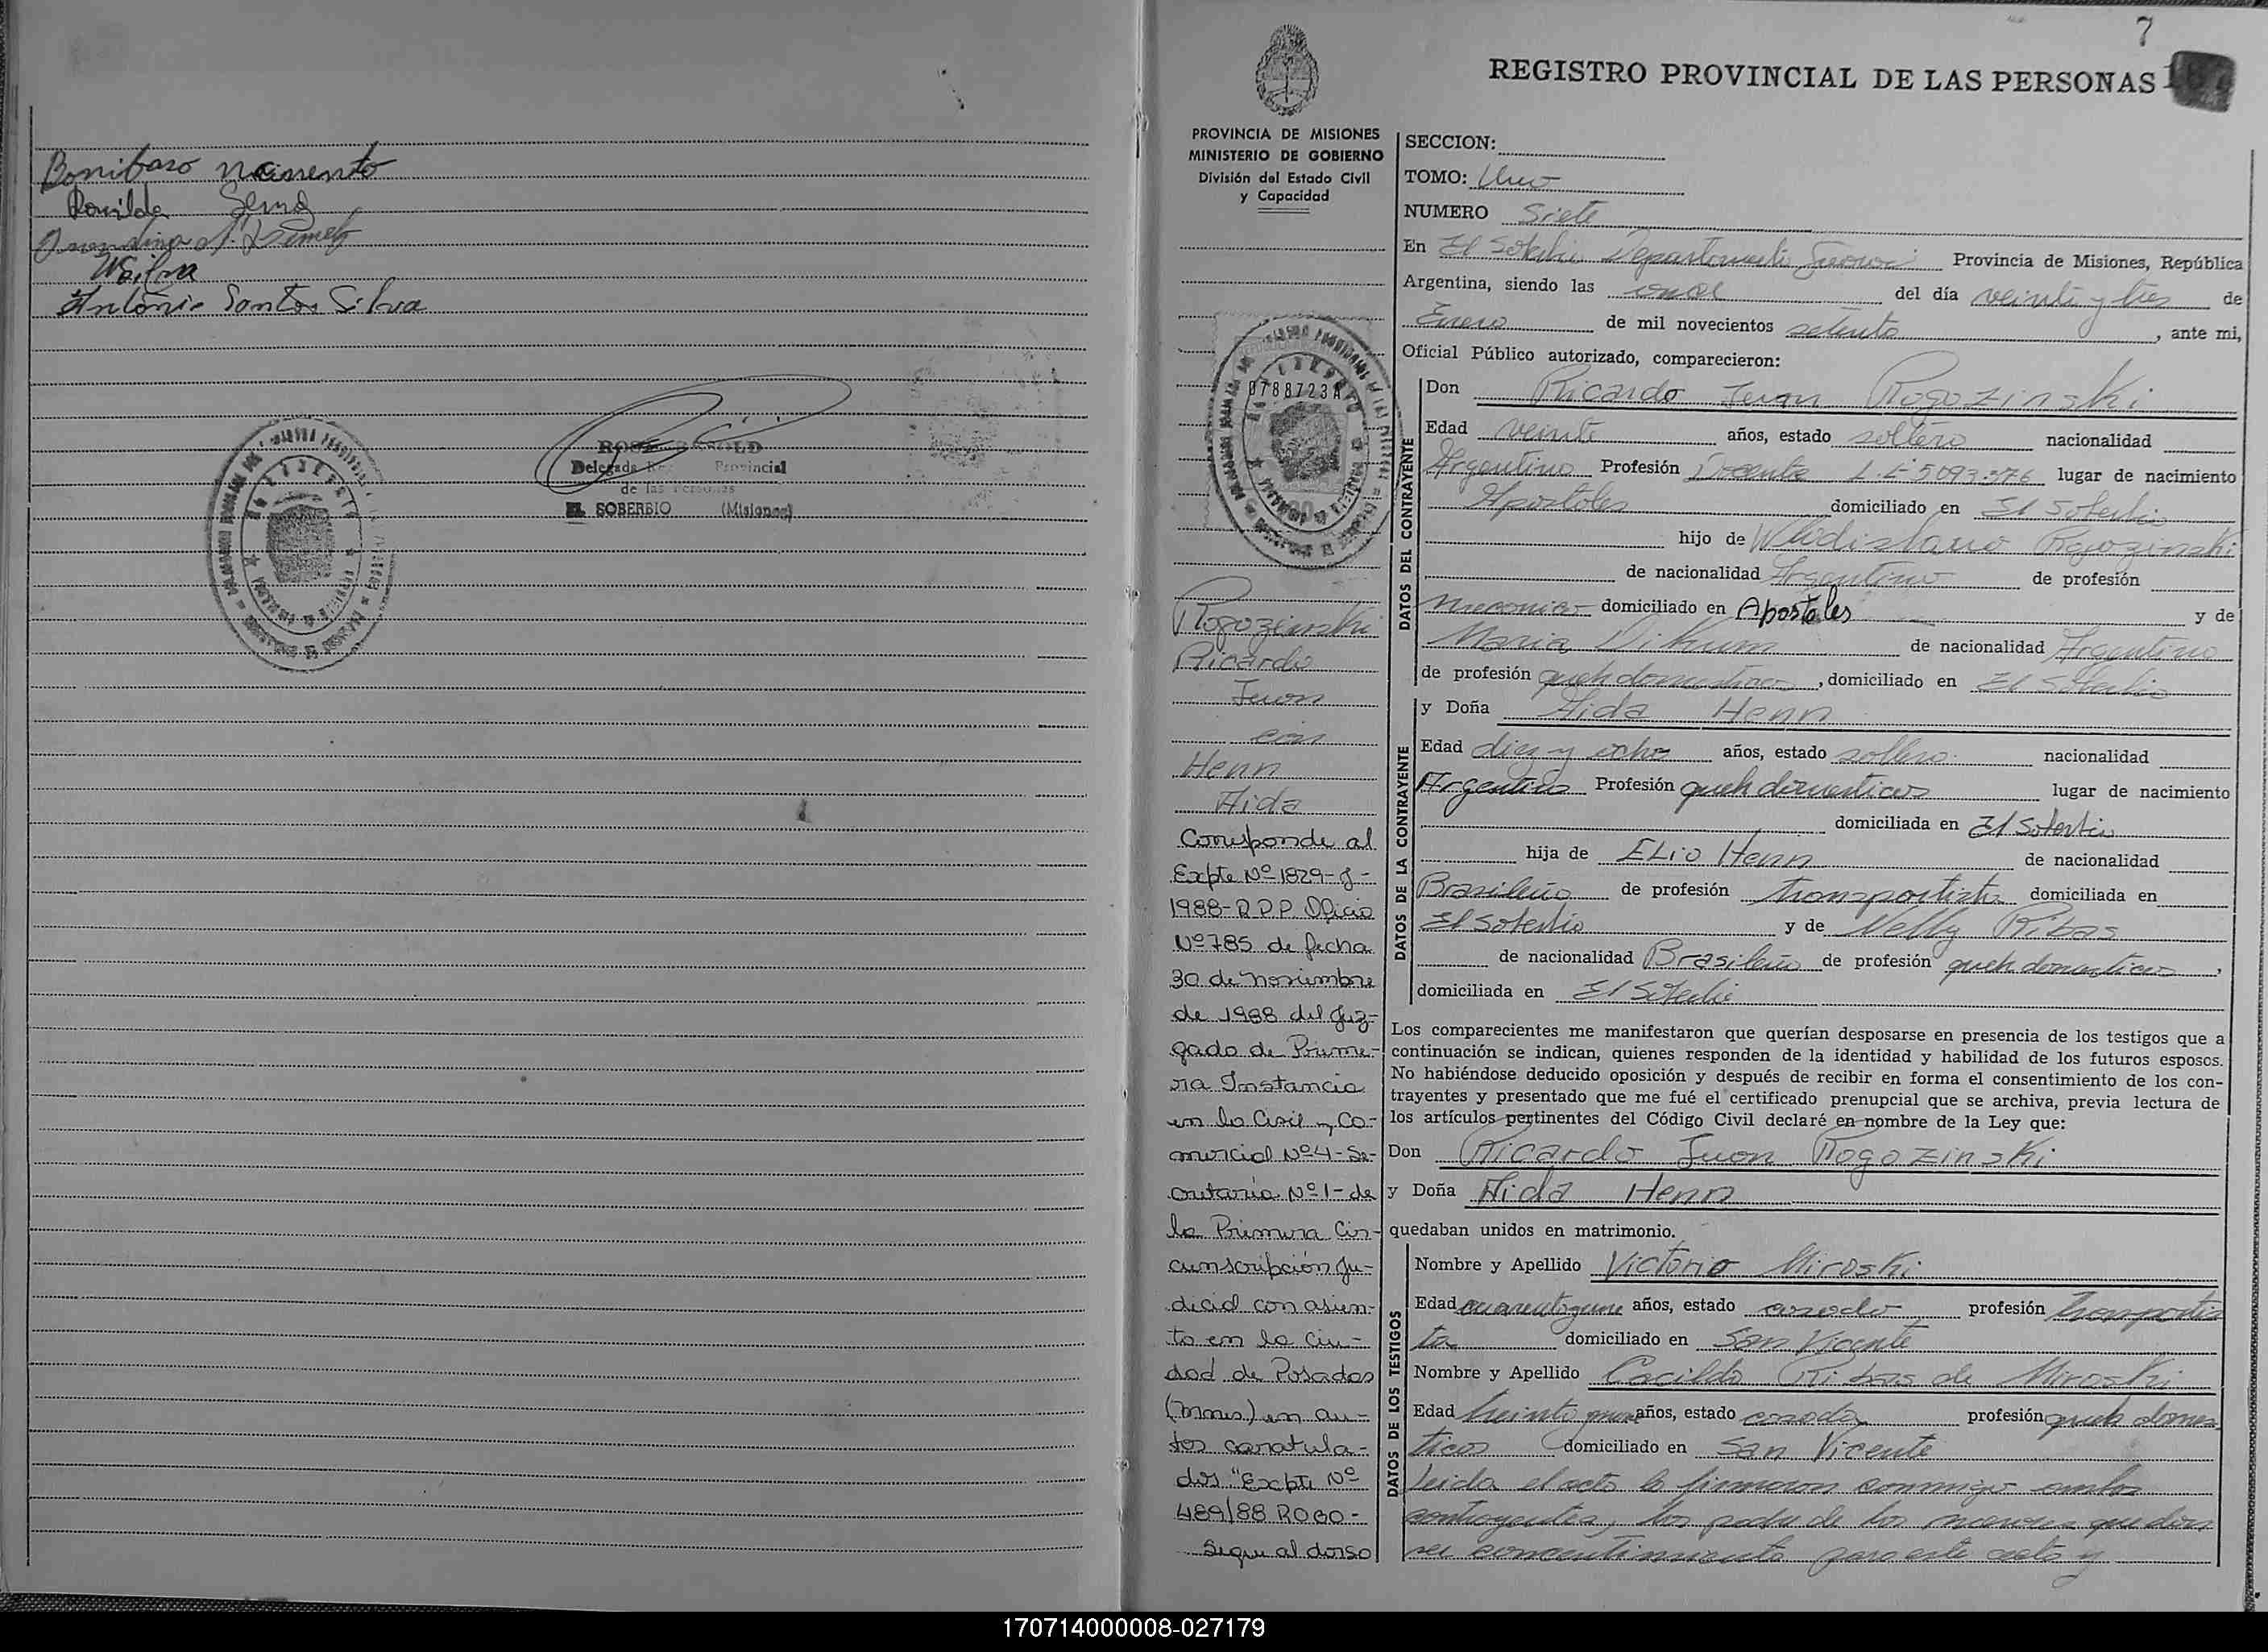 Bonifaso
Romilda
Antônio Santos Silva
Delegada Provincial
de las Personas
EL SOBERBIO (Misiones)
7
REGISTRO PROVINCIAL DE LAS PERSONAS
PROVINCIA DE MISIONES
MINISTERIO DE GOBIERNO
División del Estado Civil
y Capacidad
0788723A
Rogozinski
Ricardo
Juan
con
Henn
Aida
Corresponde al
Expte Nº 1829-J-
1988-R.P.P. Oficio
Nº 785 de fecha
30 de Noviembre
de 1988 del Juz-
gado de Prime-
ra Instancia
en lo Civil y Co-
mercial Nº 4- Se-
cretaría Nº 1- de
la Primera Cir-
cunscripción Ju-
dicial con asien-
to en la Ciu-
dad de Posadas
(Mnes) en au-
tos caratula-
dos "Expte Nº
489/88 ROGO-
Sigue al dorso
SECCION:
TOMO: Uno
NUMERO Siete
En El Soberbio Departamento Guaraní Provincia de Misiones, República
Argentina, siendo las once del día veinte y tres de
Enero de mil novecientos setenta, ante mi,
Oficial Público autorizado, comparecieron:
DATOS DEL CONTRAYENTE
Don Ricardo Juan Rogozinski
Edad veinte años, estado soltero nacionalidad
Argentino Profesión Docente L.E 5093.576 lugar de nacimiento
Apostoles domiciliado en El Soberbio
hijo de Wladislavo Rogozinski
de nacionalidad Argentino de profesión
mecanico domiciliado en Apostoles y de
Maria de nacionalidad Argentina
de profesión queh domesticos, domiciliado en El Soberbio
DATOS DE LA CONTRAYENTE
y Doña Aida Henn
Edad diez y ocho años, estado soltera nacionalidad
Argentina Profesión queh domesticos lugar de nacimiento
domiciliada en El Soberbio
hija de Elio Henn de nacionalidad
Brasileño de profesión transportista domiciliada en
El Soberbio y de Nelly Ribas
de nacionalidad Brasileña de profesión queh domesticos,
domiciliada en El Soberbio
Los comparecientes me manifestaron que querían desposarse en presencia de los testigos que a
continuación se indican, quienes responden de la identidad y habilidad de los futuros esposos.
No habiéndose deducido oposición y después de recibir en forma el consentimiento de los con-
trayentes y presentado que me fué el certificado prenupcial que se archiva, previa lectura de
los artículos pertinentes del Código Civil declaré en nombre de la Ley que:
Don Ricardo Juan Rogozinski
y Doña Aida Henn
quedaban unidos en matrimonio.
DATOS DE LOS TESTIGOS
Nombre y Apellido Victorio Miroski
Edad años, estado casado profesión transportis
ta domiciliado en San Vicente
Nombre y Apellido Cacilda Ribas de Miroski
Edad treinta años, estado casada profesión queh domes
ticos domiciliado en San Vicente
Leida el acta la firmaron conmigo ambos
contrayentes, los padre de los menores que dan
su concentimiento para este acto y